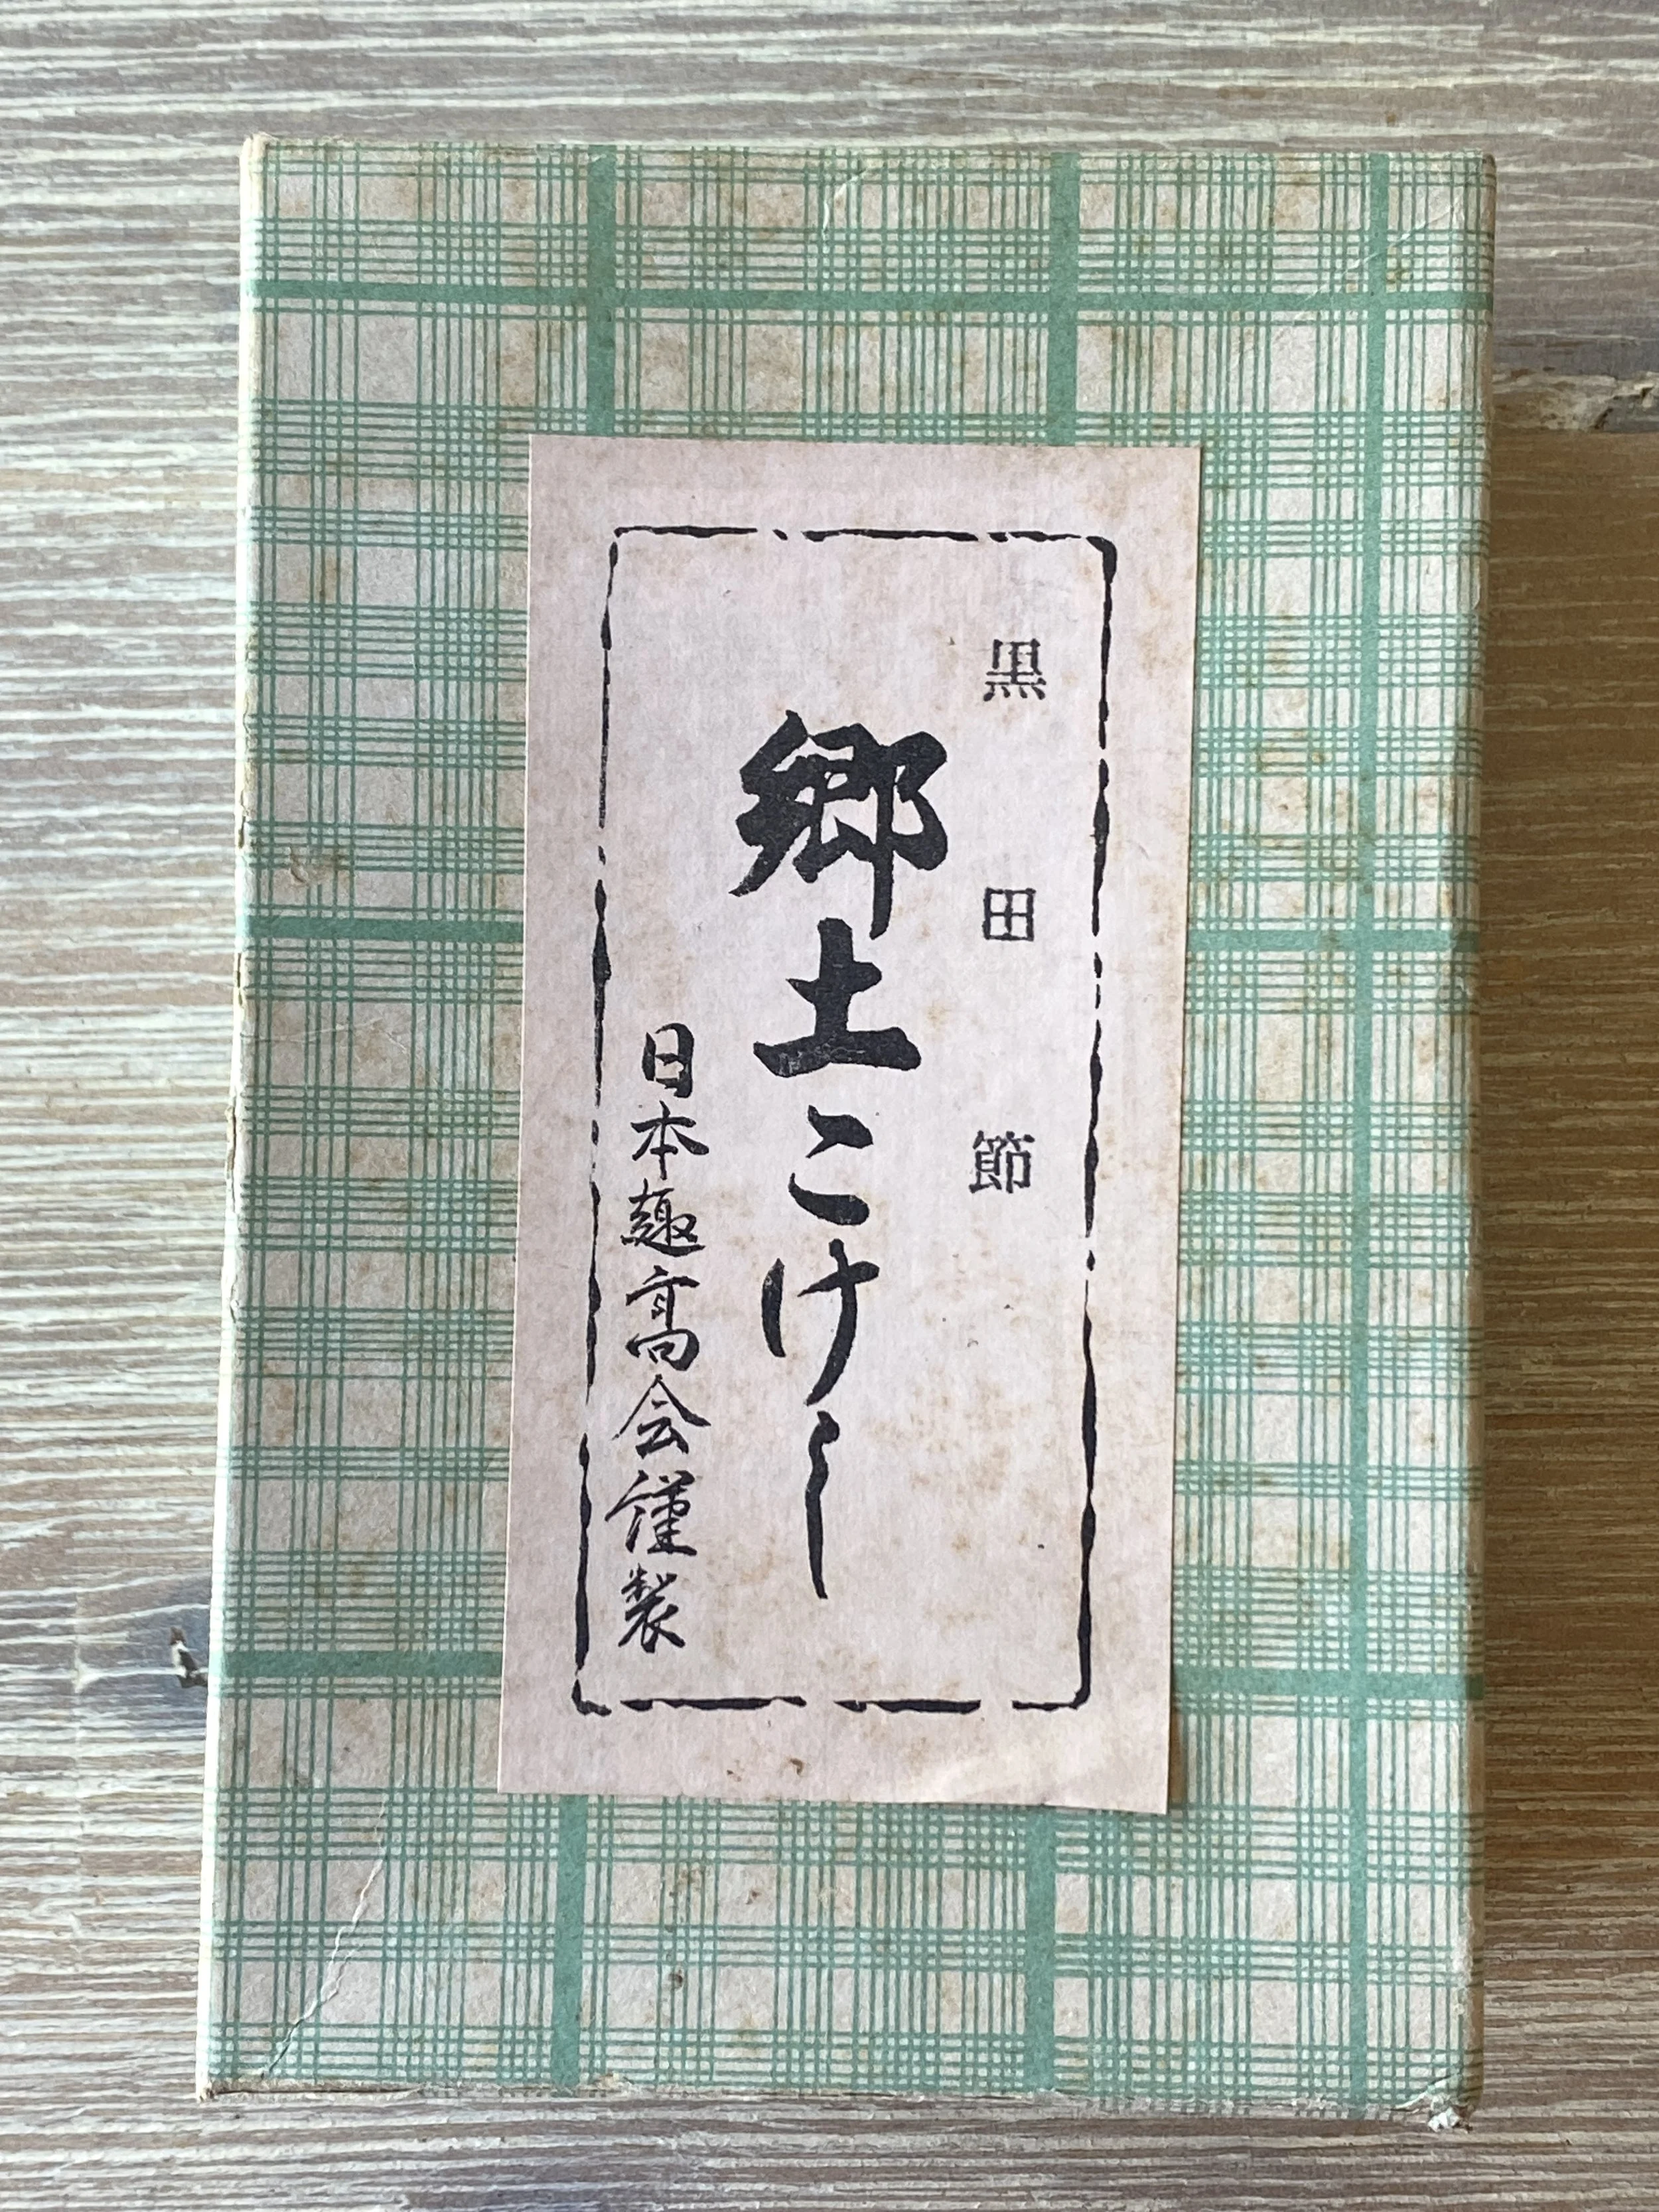 黒田節
郷土こけし
日本趣高会謹製